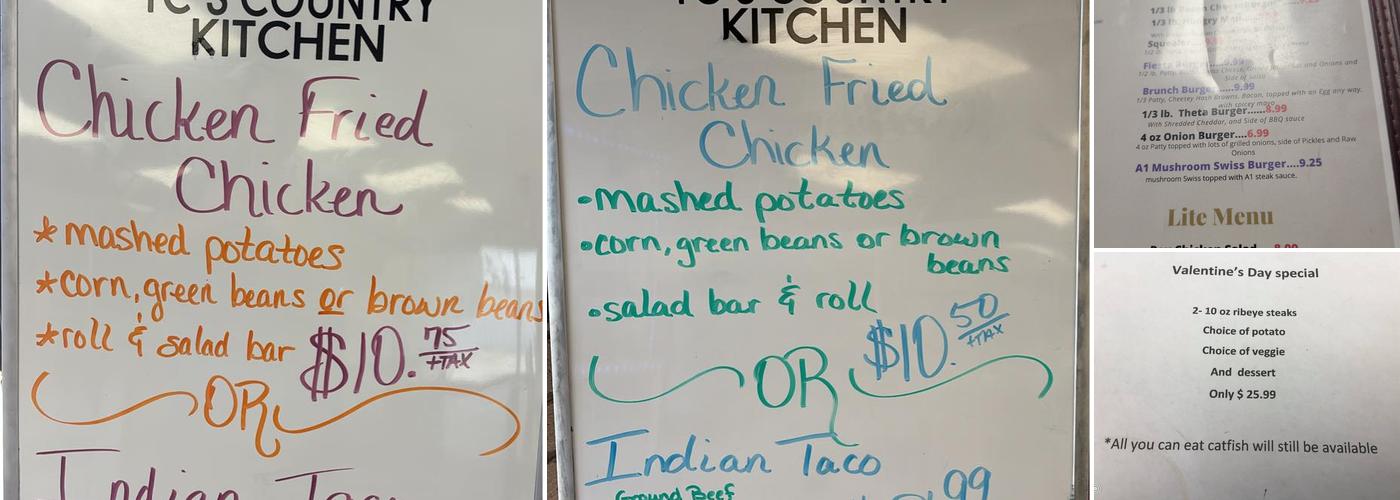 TC'S COUNTRY
KITCHEN
Chicken Fried
Chicken
*mashed potatoes
*corn, green beans or brown beans
*roll & salad bar $10.75
+TAX
OR
Indian Taco
KITCHEN
Chicken Fried
Chicken
•mashed potatoes
•corn, green beans or brown
beans
•salad bar & roll
$10.50
+TAX
OR
Indian Taco
Ground Beef
99
1/3 lb
1/3 lb. Hungry
Squealer
Fiesta Burger.....9.99
1/2 lb. Patty, and Onions and
Side of salsa
Brunch Burger.....9.99
1/3 Patty, Cheesey Hash Browns, Bacon, topped with an Egg any way.
with spicey mayo
1/3 lb. Theta Burger......8.99
With Shredded Cheddar, and Side of BBQ sauce
4 oz Onion Burger....6.99
4 oz Patty topped with lots of grilled onions, side of Pickles and Raw
Onions
A1 Mushroom Swiss Burger....9.25
mushroom Swiss topped with A1 steak sauce.
Lite Menu
Valentine's Day special
2- 10 oz ribeye steaks
Choice of potato
Choice of veggie
And dessert
Only $ 25.99
*All you can eat catfish will still be available